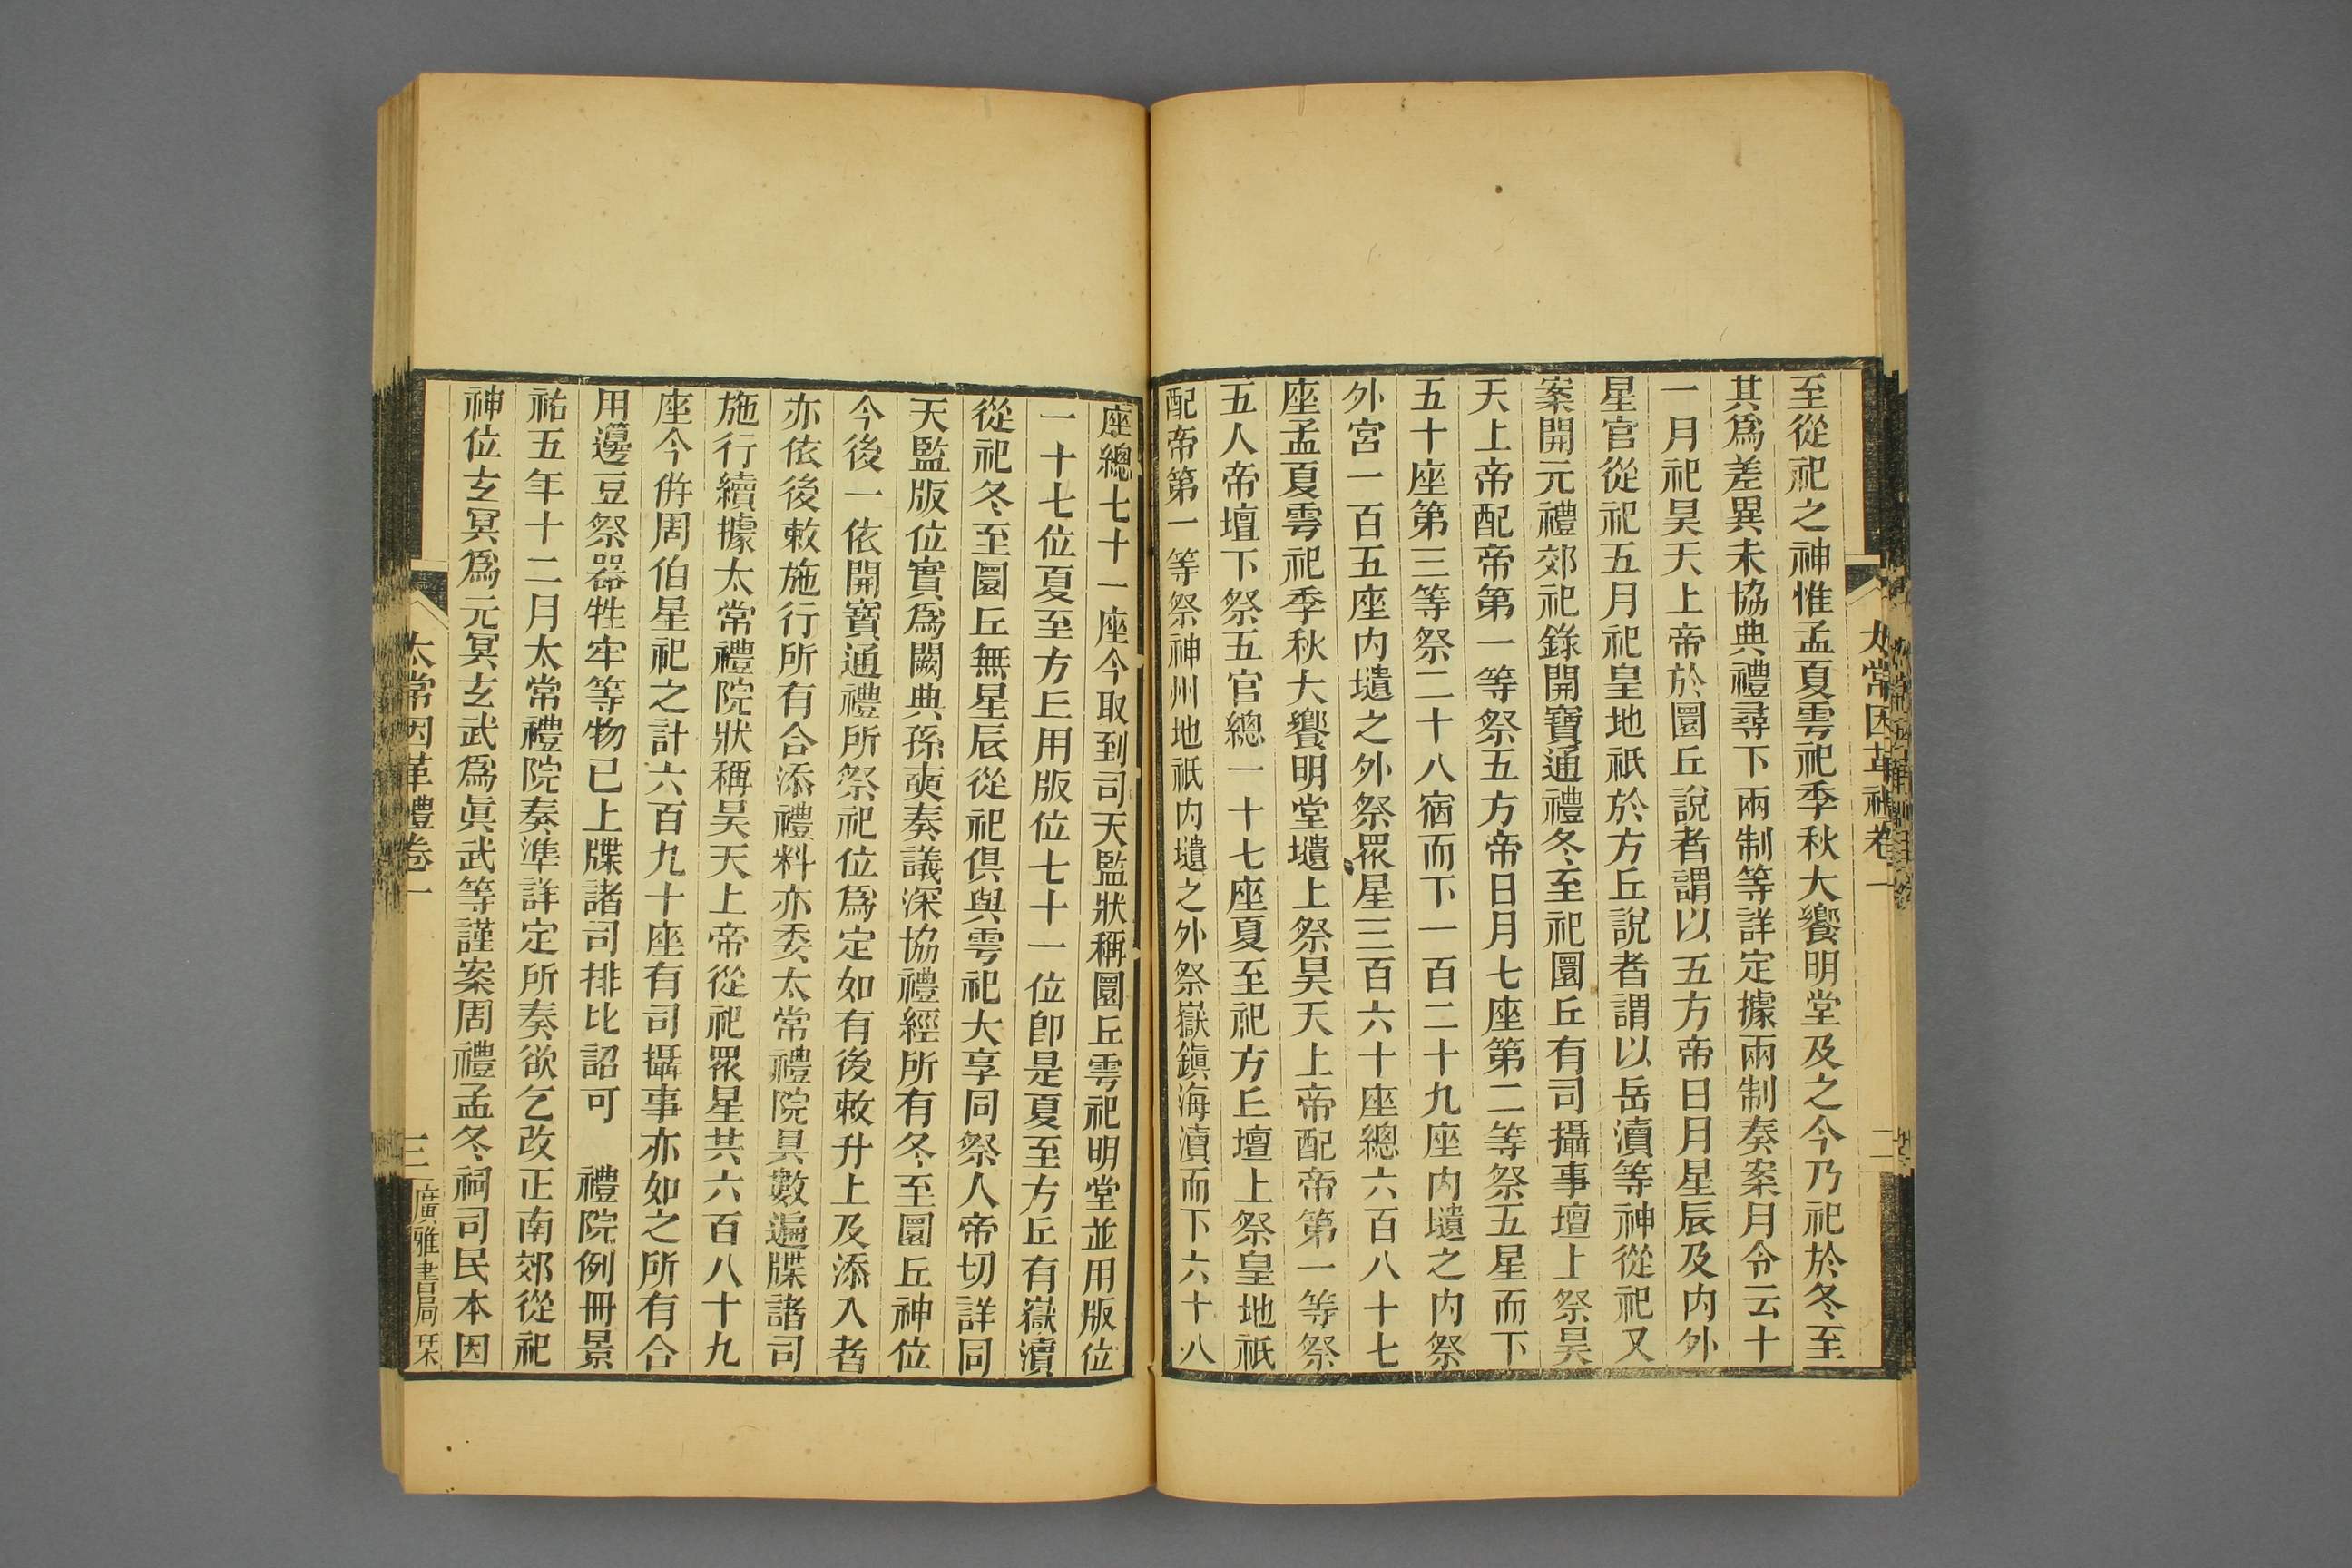 太常因革禮卷一
二
至從祀之神惟孟夏雩祀季秋大饗明堂及之今乃祀於冬至
其爲差異未協典禮尋下兩制等詳定據兩制奏案月令云十
一月祀昊天上帝於圜丘說者謂以五方帝日月星辰及內外
星官從祀五月祀皇地祇於方丘說者謂以岳瀆等神從祀又
案開元禮郊祀錄開寶通禮冬至祀圜丘有司攝事壇上祭昊
天上帝配帝第一等祭五方帝日月七座第二等祭五星而下
五十座第三等祭二十八宿而下一百二十九座內壝之內祭
外宮一百五座內壝之外祭眾星三百六十座總六百八十七
座孟夏雩祀季秋大饗明堂壝上祭昊天上帝配帝第一等祭
五人帝壇下祭五官總一十七座夏至祀方丘壇上祭皇地祇
配帝第一等祭神州地祇內壝之外祭嶽鎭海瀆而下六十八
座總七十一座今取到司天監狀稱圜丘雩祀明堂並用版位
一十七位夏至方丘用版位七十一位卽是夏至方丘有嶽瀆
從祀冬至圜丘無星辰從祀俱與雩祀大享同祭人帝切詳同
天監版位實爲闕典孫奭奏議深協禮經所有冬至圜丘神位
今後一依開寶通禮所祭祀位爲定如有後敕升上及添入者
亦依後敕施行所有合添禮料亦委太常禮院具數遍牒諸司
施行續據太常禮院狀稱昊天上帝從祀眾星共六百八十九
座今併周伯星祀之計六百九十座有司攝事亦如之所有合
用籩豆祭器牲牢等物已上牒諸司排比詔可　禮院例冊景
祐五年十二月太常禮院奏準詳定所奏欲乞改正南郊從祀
神位玄冥爲元冥玄武爲眞武等謹案周禮孟冬祠司民本因
太常因革禮卷一
三
廣雅書局栞